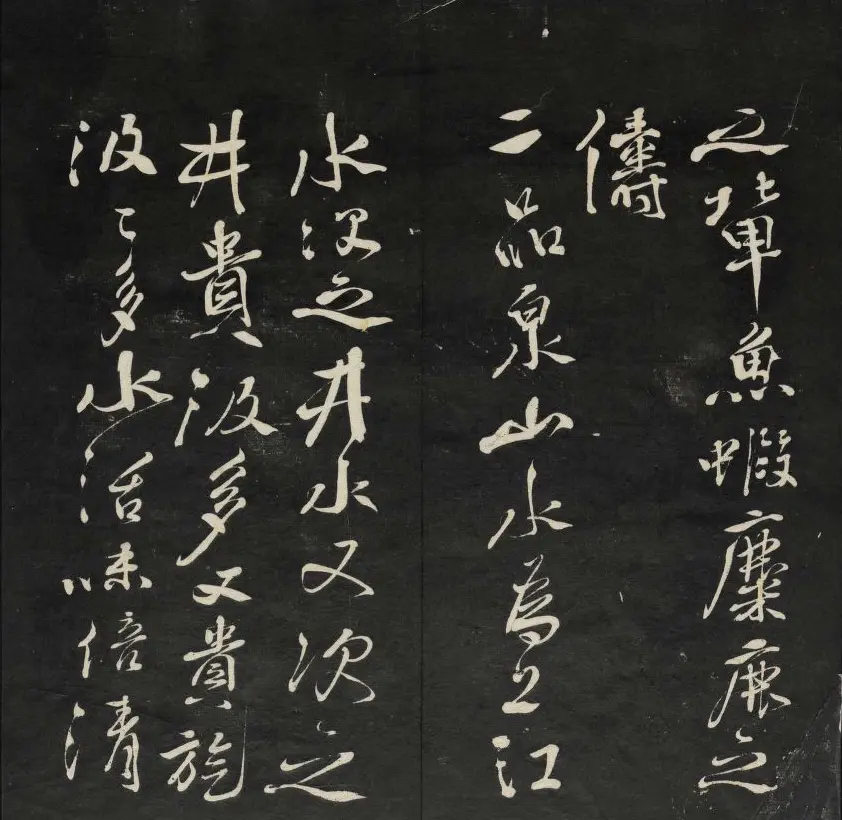 之輩魚蝦麋鹿之
儔
二品泉山水為上江
水次之井水又次之
井貴汲多又貴旋
汲汲多水活味倍清